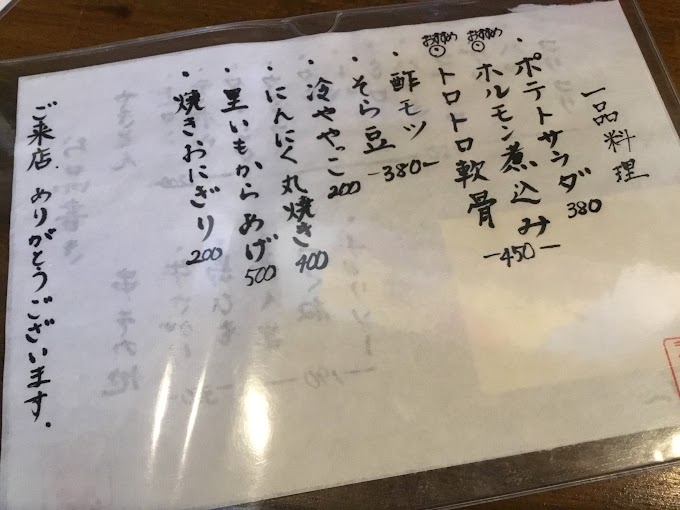 一品料理
・ポテトサラダ 380
おすすめ ホルモン煮込み -450-
おすすめ トロトロ軟骨
・酢モツ -380-
・そら豆
・冷ややっこ 200
・にんにく丸焼き 400
・里いもからあげ 500
・焼きおにぎり 200
ご来店、ありがとうございます。